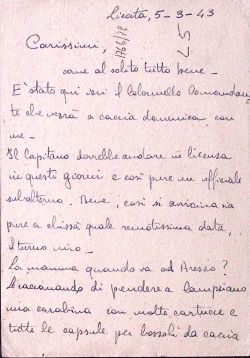 Licata, 5-3-43
Carissimi,
come al solito tutto bene -
E' stato qui ieri il Colonnello Comandan
te che verrà a caccia domenica con
me -
Il Capitano dovrebbe andare in licenza
in questi giorni e così pure un ufficiale
subalterno. Bene, così si avvicina
pure a chissà quale remotissima data,
il turno mio -
La mamma quando va ad Arezzo?
Raccomando di prendere a Lampiano
mia carabina con molte cartucce e
tutte le capsule per bossoli da caccia